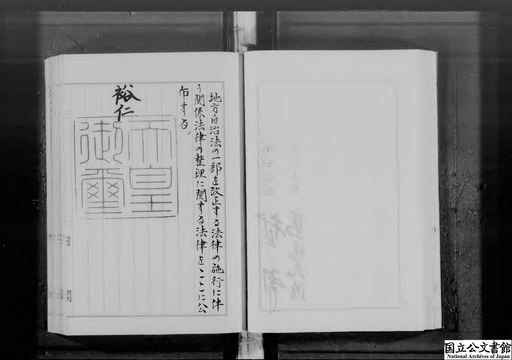 地方自治法の一部を改正する法律の施行に伴
う関係法律の整理に関する法律をここに公
布する。
裕仁
天皇
御璽
国立公文書館
National Archives of Japan